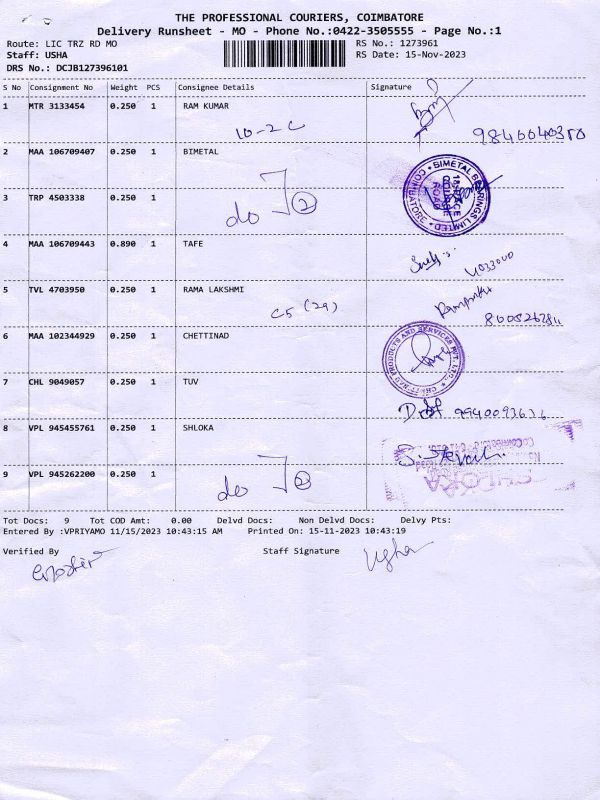 THE PROFESSIONAL COURIERS, COIMBATORE
Delivery Runsheet - MO - Phone No.:0422-3505555 - Page No.:1
Route: LIC TRZ RD MO RS No.: 1273961
Staff: USHA RS Date: 15-Nov-2023
DRS No.: DCJB127396101
S No Consignment No Weight PCS Consignee Details Signature
1 MTR 3133454 0.250 1 RAM KUMAR
10-2 C 9840040380
2 MAA 106709407 0.250 1 BIMETAL
BIMETAL BEARINGS LIMITED COIMBATORE
3 TRP 4503338 0.250 1
do 2
4 MAA 106709443 0.890 1 TAFE
5 TVL 4703950 0.250 1 RAMA LAKSHMI
C5 (29)
6 MAA 102344929 0.250 1 CHETTINAD
PRODUCTS AND SERVICES PVT. LTD.
7 CHL 9049057 0.250 1 TUV
8 VPL 945455761 0.250 1 SHLOKA
SHLOKA
9 VPL 945262200 0.250 1
do 2
Tot Docs: 9 Tot COD Amt: 0.00 Delvd Docs: Non Delvd Docs: Delvy Pts:
Entered By :VPRIYAMO 11/15/2023 10:43:15 AM Printed On: 15-11-2023 10:43:19
Verified By Staff Signature
Usha